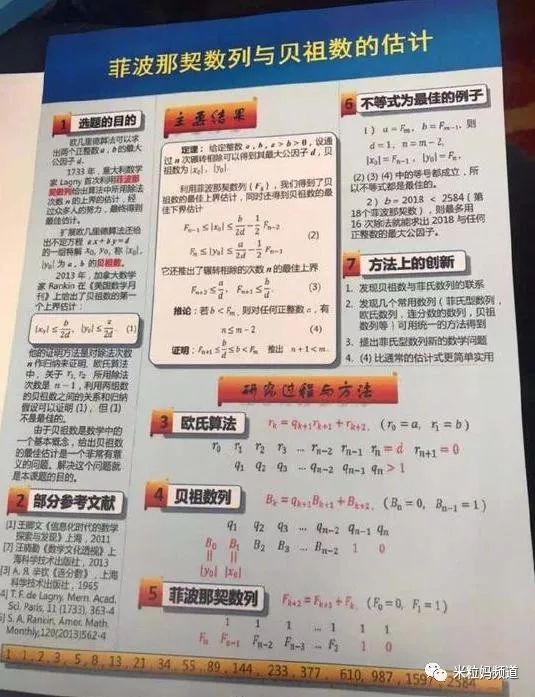 菲波那契数列与贝祖数的估计
1 选题的目的
欧几里德算法可以求
出两个正整数 a, b 的最大
公因子 d.
1733 年，意大利数学
家 Lagny 首次利用菲波那
契数列给出算法中所用除法
次数 n 的上界的估计，经
过众多人的努力，最终得到
最佳估计.
扩展欧几里德算法还给
出不定方程 ax + by = d
的一组特解 x₀, y₀, 称 |x₀|,
|y₀| 为 a, b 的贝祖数.
2013 年，加拿大数学
家 Rankin 在《美国数学月
刊》上给出了贝祖数的第一
个上界估计：
|x₀| ≤ b/2d, |y₀| ≤ a/2d. (1)
他的证明方法是对除法次数
n 作归纳来证明. 欧氏算法
中，关于 r₁, r₂ 所用除法
次数是 n − 1，利用两组数
的贝祖数之间的关系和归纳
假设可以证明 (1)，但 (1)
不是最佳的.
由于贝祖数是数学中的
一个基本概念，给出贝祖数
的最佳估计是一个非常有意
义的问题。解决这个问题就
是本课题的目的。
2 部分参考文献
[1] 王卿文《信息化时代的数学
探索与发现》上海，2011
[2] 汪晓勤《数学文化透视》上
海科学技术出版社，2013
[3] A. Я. 辛钦《连分数》，上海
科学技术出版社，1965
[4] T. F. de Lagny, Mem. Acad.
Sci. Paris, 11 (1733), 363-4
[5] S. A. Rankin, Amer. Math.
Monthly, 120(2013) 562-4
主要结果
定理：给定整数 a, b, a > b > 0，设通
过 n 次辗转相除可以得到其最大公因子 d，贝
祖数为 |x₀|, |y₀|.
利用菲波那契数列 (Fₖ)，我们得到了贝
祖数的最佳上界估计，同时还得到贝祖数的最
佳下界估计
Fₙ₋₁ ≤ |x₀| ≤ b/2d − 1/2 Fₙ₋₂
(2)
Fₙ ≤ |y₀| ≤ a/2d − 1/2 Fₙ₋₁
它还推出了辗转相除的次数 n 的最佳上界
Fₙ₊₂ ≤ a/d, Fₙ₊₁ ≤ b/d. (3)
推论：若 b < Fₘ，则对任何正整数 a，有
n ≤ m − 2 (4)
证明：Fₙ₊₁ ≤ b/d ≤ b < Fₘ 推出 n + 1 < m.
6 不等式为最佳的例子
1) a = Fₘ, b = Fₘ₋₁, 则
d = 1, n = m − 2,
|x₀| = Fₙ₋₁, |y₀| = Fₙ.
(2) (3) (4) 中的等号都成立，所
以不等式都是最佳的。
2) b = 2018 < 2584 (第
18个菲波那契数)，则最多用
16 次除法就能求出 2018 与任何
正整数的最大公因子。
7 方法上的创新
1. 发现贝祖数与菲氏数列的联系
2. 发现几个常用数列（菲氏型数列，
欧氏数列，连分数的数列，贝祖
数列等）可用统一的方法得到
3. 提出菲氏型数列新的数学问题
4. (4) 比通常的估计式更简单实用
研究过程与方法
3 欧氏算法 rₖ = qₖ₊₁rₖ₊₁ + rₖ₊₂, (r₀ = a, r₁ = b)
r₀ r₁ r₂ r₃ ... rₙ₋₂ rₙ₋₁ rₙ = d rₙ₊₁ = 0
q₁ q₂ q₃ ... qₙ₋₂ qₙ₋₁ qₙ > 1
4 贝祖数列 Bₖ = qₖ₊₁Bₖ₊₁ + Bₖ₊₂, (Bₙ = 0, Bₙ₋₁ = 1)
q₁ q₂ q₃ ... qₙ₋₂ qₙ₋₁ qₙ
B₀ B₁ B₂ B₃ ... Bₙ₋₂ 1 0
|| ||
|y₀| |x₀|
5 菲波那契数列 Fₖ₊₂ = Fₖ₊₁ + Fₖ, (F₀ = 0, F₁ = 1)
1 1 1 ... 1 1 1
Fₙ Fₙ₋₁ Fₙ₋₂ Fₙ₋₃ ... F₂ 1 0
1, 1, 2, 3, 5, 8, 13, 21, 34, 55, 89, 144, 233, 377, 610, 987, 1597, 2584
米粒妈频道